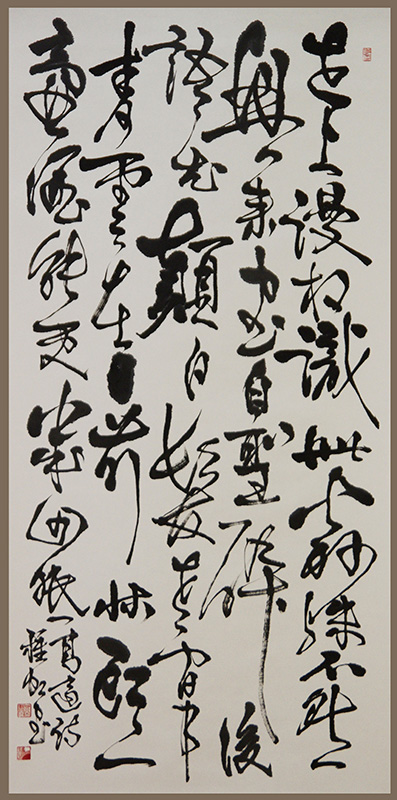 世上謾相識此翁殊不然
興來書自聖醉後
語尤顛白髮老閑事
青雲在目前牀頭一
壺酒能更幾回眠
高適詩
書